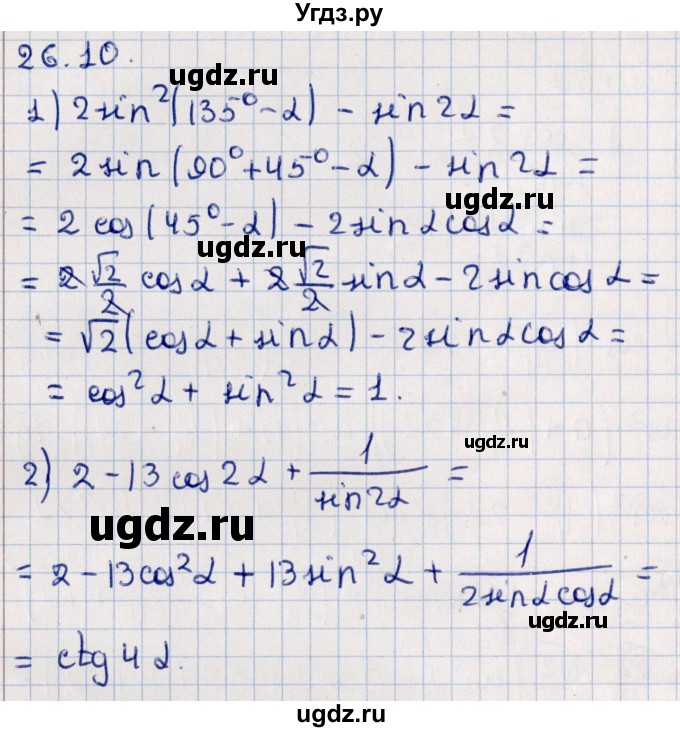 Угдз.ру
26.10.
ugdz.ru
1) 2 sin²(135° - α) - sin 2α =
= 2 sin (90° + 45° - α) - sin 2α =
ugdz.ru
= 2 cos (45° - α) - 2 sin α cos α =
ugdz.ru
= 2 √2/2 cos α + 2 √2/2 sin α - 2 sin cos α =
= √2 (cos α + sin α) - 2 sin α cos α =
= cos² α + sin² α = 1.
ugdz.ru
2) 2 - 13 cos 2α + 1/sin 2α =
ugdz.ru
= 2 - 13 cos² α + 13 sin² α + 1/2 sin α cos α =
ugdz.ru
= ctg 4 α.
ugdz.ru